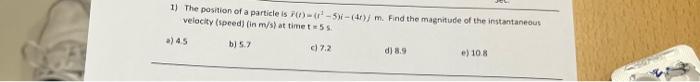 1) The position of a particle is r⃗(t)=(t²−5)i−(4t)j m. Find the magnitude of the instantaneous
velocity (speed) (in m/s) at time t = 5 s.
a) 4.5 b) 5.7 c) 7.2 d) 8.9 e) 10.8